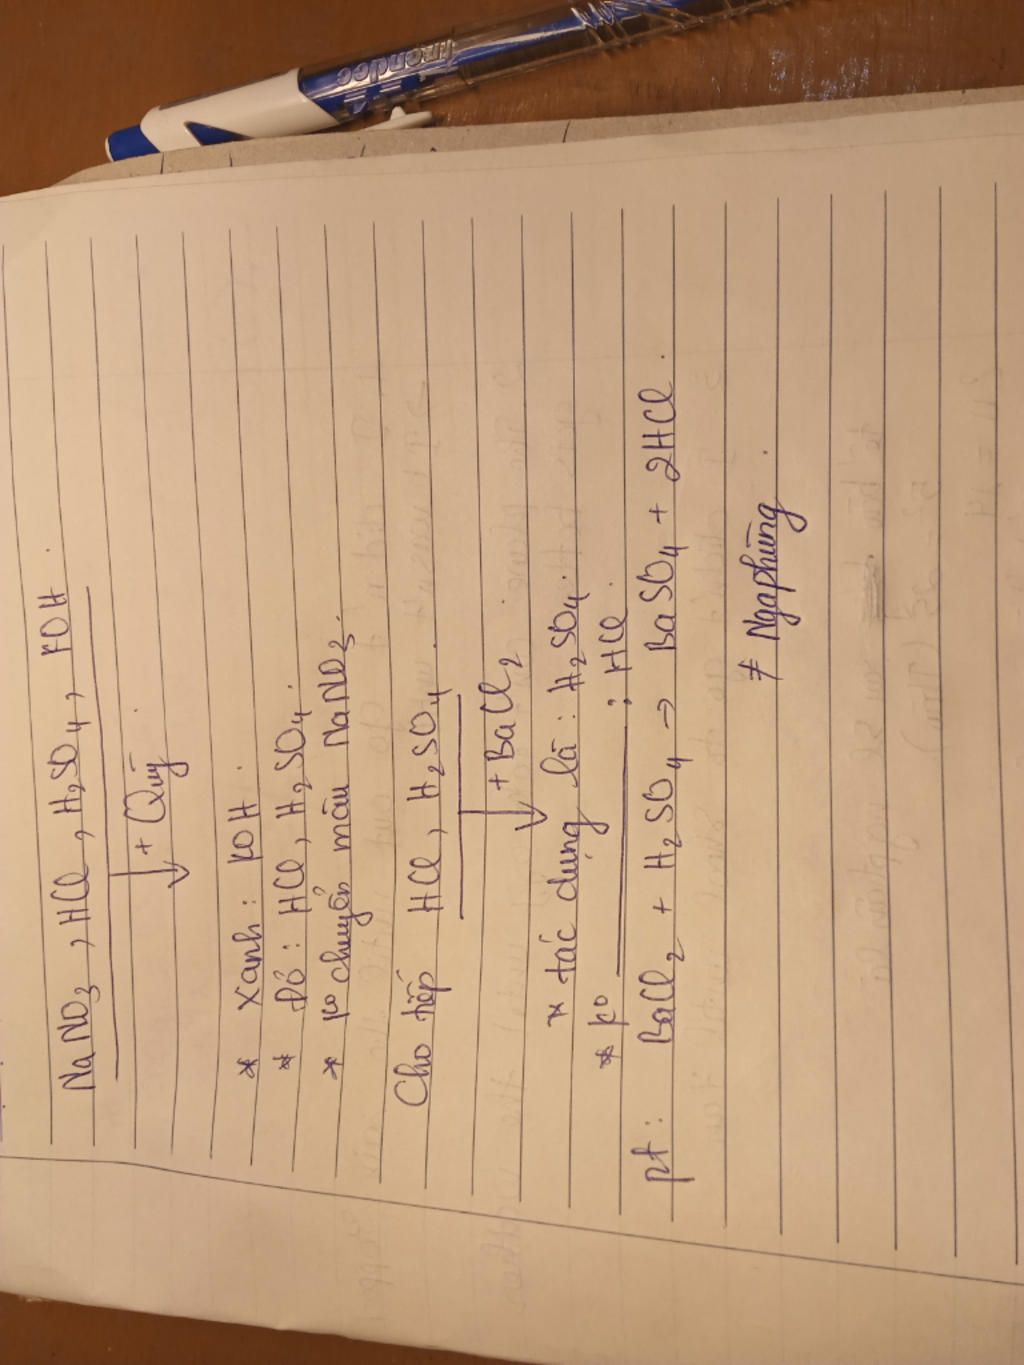 NaNO3, HCl, H2SO4, KOH.
+ Quỳ
* Xanh: KOH.
* Đỏ: HCl, H2SO4.
* ko chuyển màu NaNO3.
Cho tiếp HCl, H2SO4.
+ BaCl2
* tác dụng là: H2SO4.
* ko ; HCl.
pt: BaCl2 + H2SO4 → BaSO4 + 2HCl.
≠ Ngaphùng